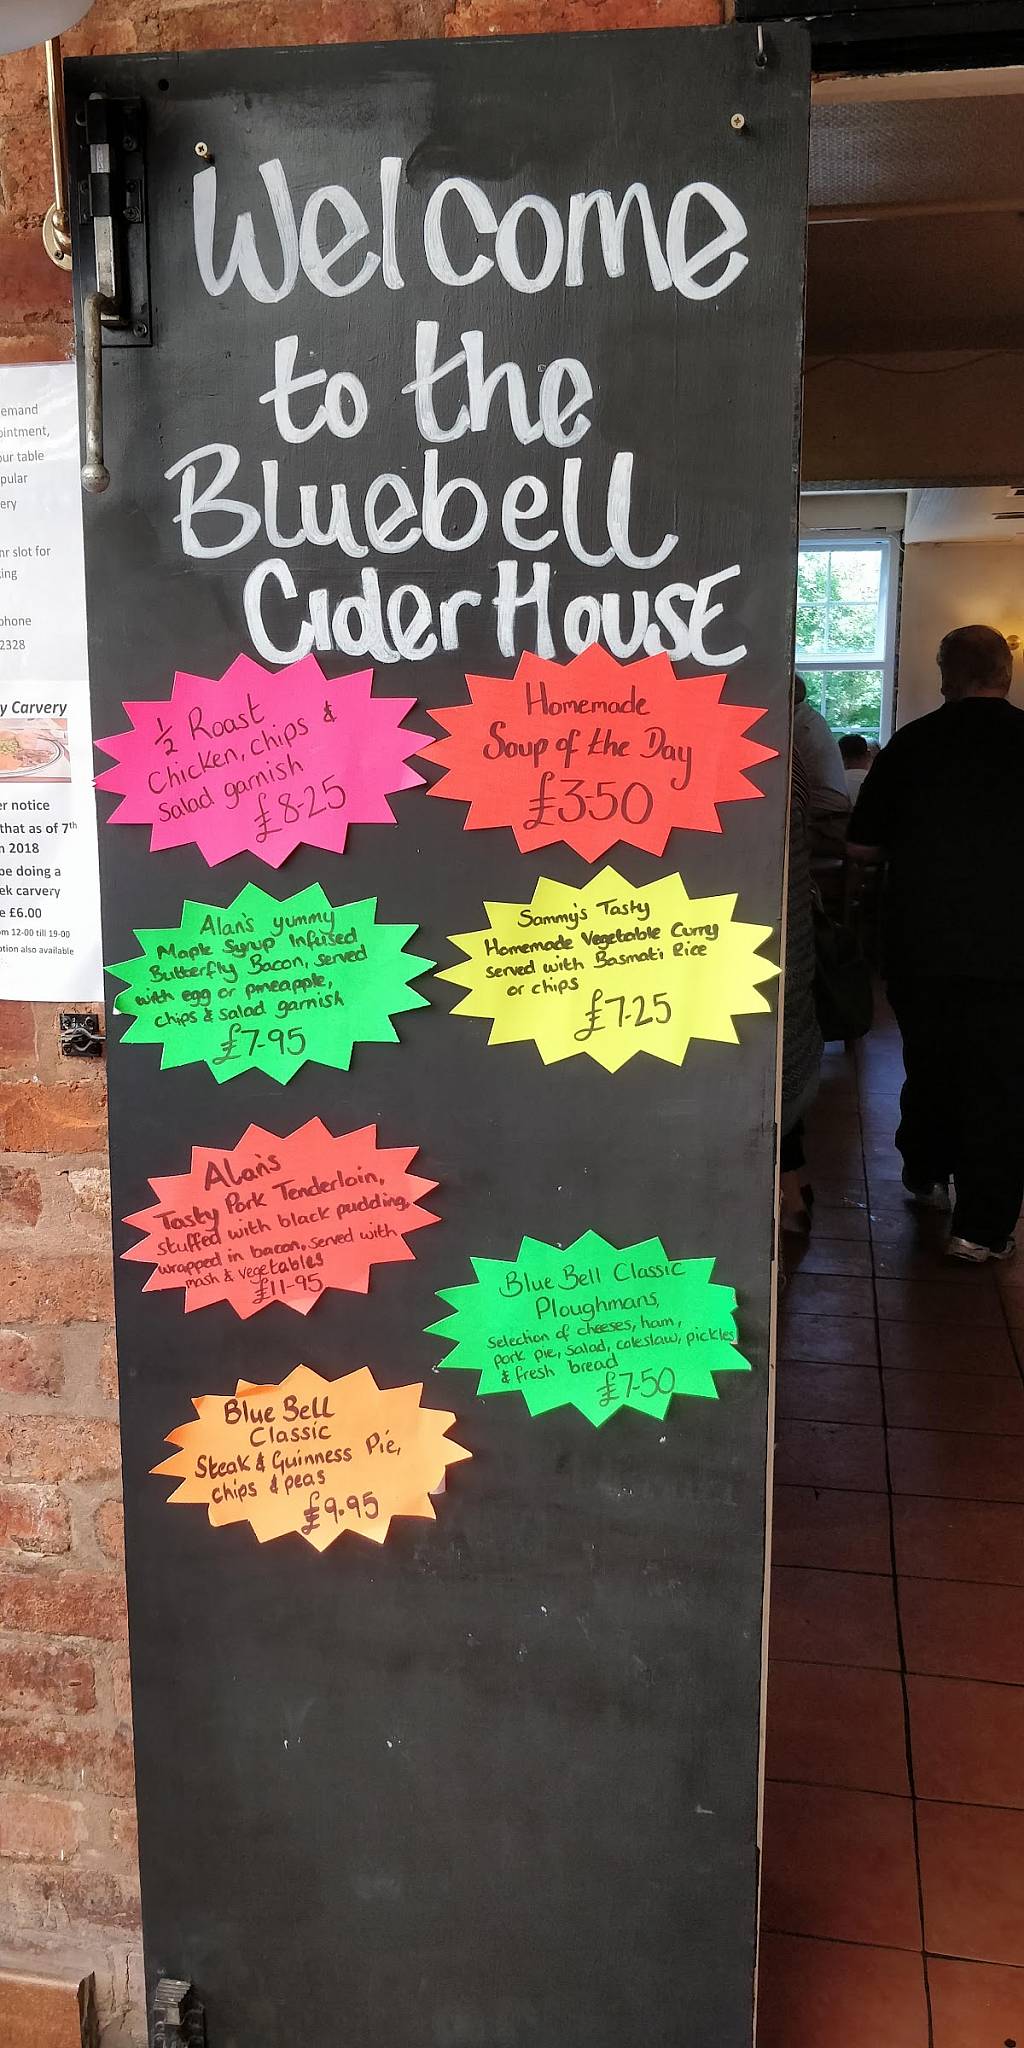 Welcome
to the
Bluebell
Cider House
½ Roast
Chicken, chips &
Salad garnish
£8-25
Homemade
Soup of the Day
£3.50
Alan's yummy
Maple Syrup Infused
Butterfly Bacon, served
with egg or pineapple,
chips & salad garnish
£7-95
Sammy's Tasty
Homemade Vegetable Curry
served with Basmati Rice
or chips
£7.25
Alan's
Tasty Pork Tenderloin,
stuffed with black pudding,
wrapped in bacon, served with
mash & vegetables
£11-95
Blue Bell Classic
Ploughmans,
Selection of cheeses, ham,
pork pie, salad, coleslaw, pickles
& fresh bread
£7-50
Blue Bell
Classic
Steak & Guinness Pie,
chips & peas
£9.95
emand
ointment,
our table
pular
ery
nr slot for
king
phone
2328
y Carvery
er notice
that as of 7th
n 2018
be doing a
ek carvery
e £6.00
om 12-00 till 19-00
ption also available